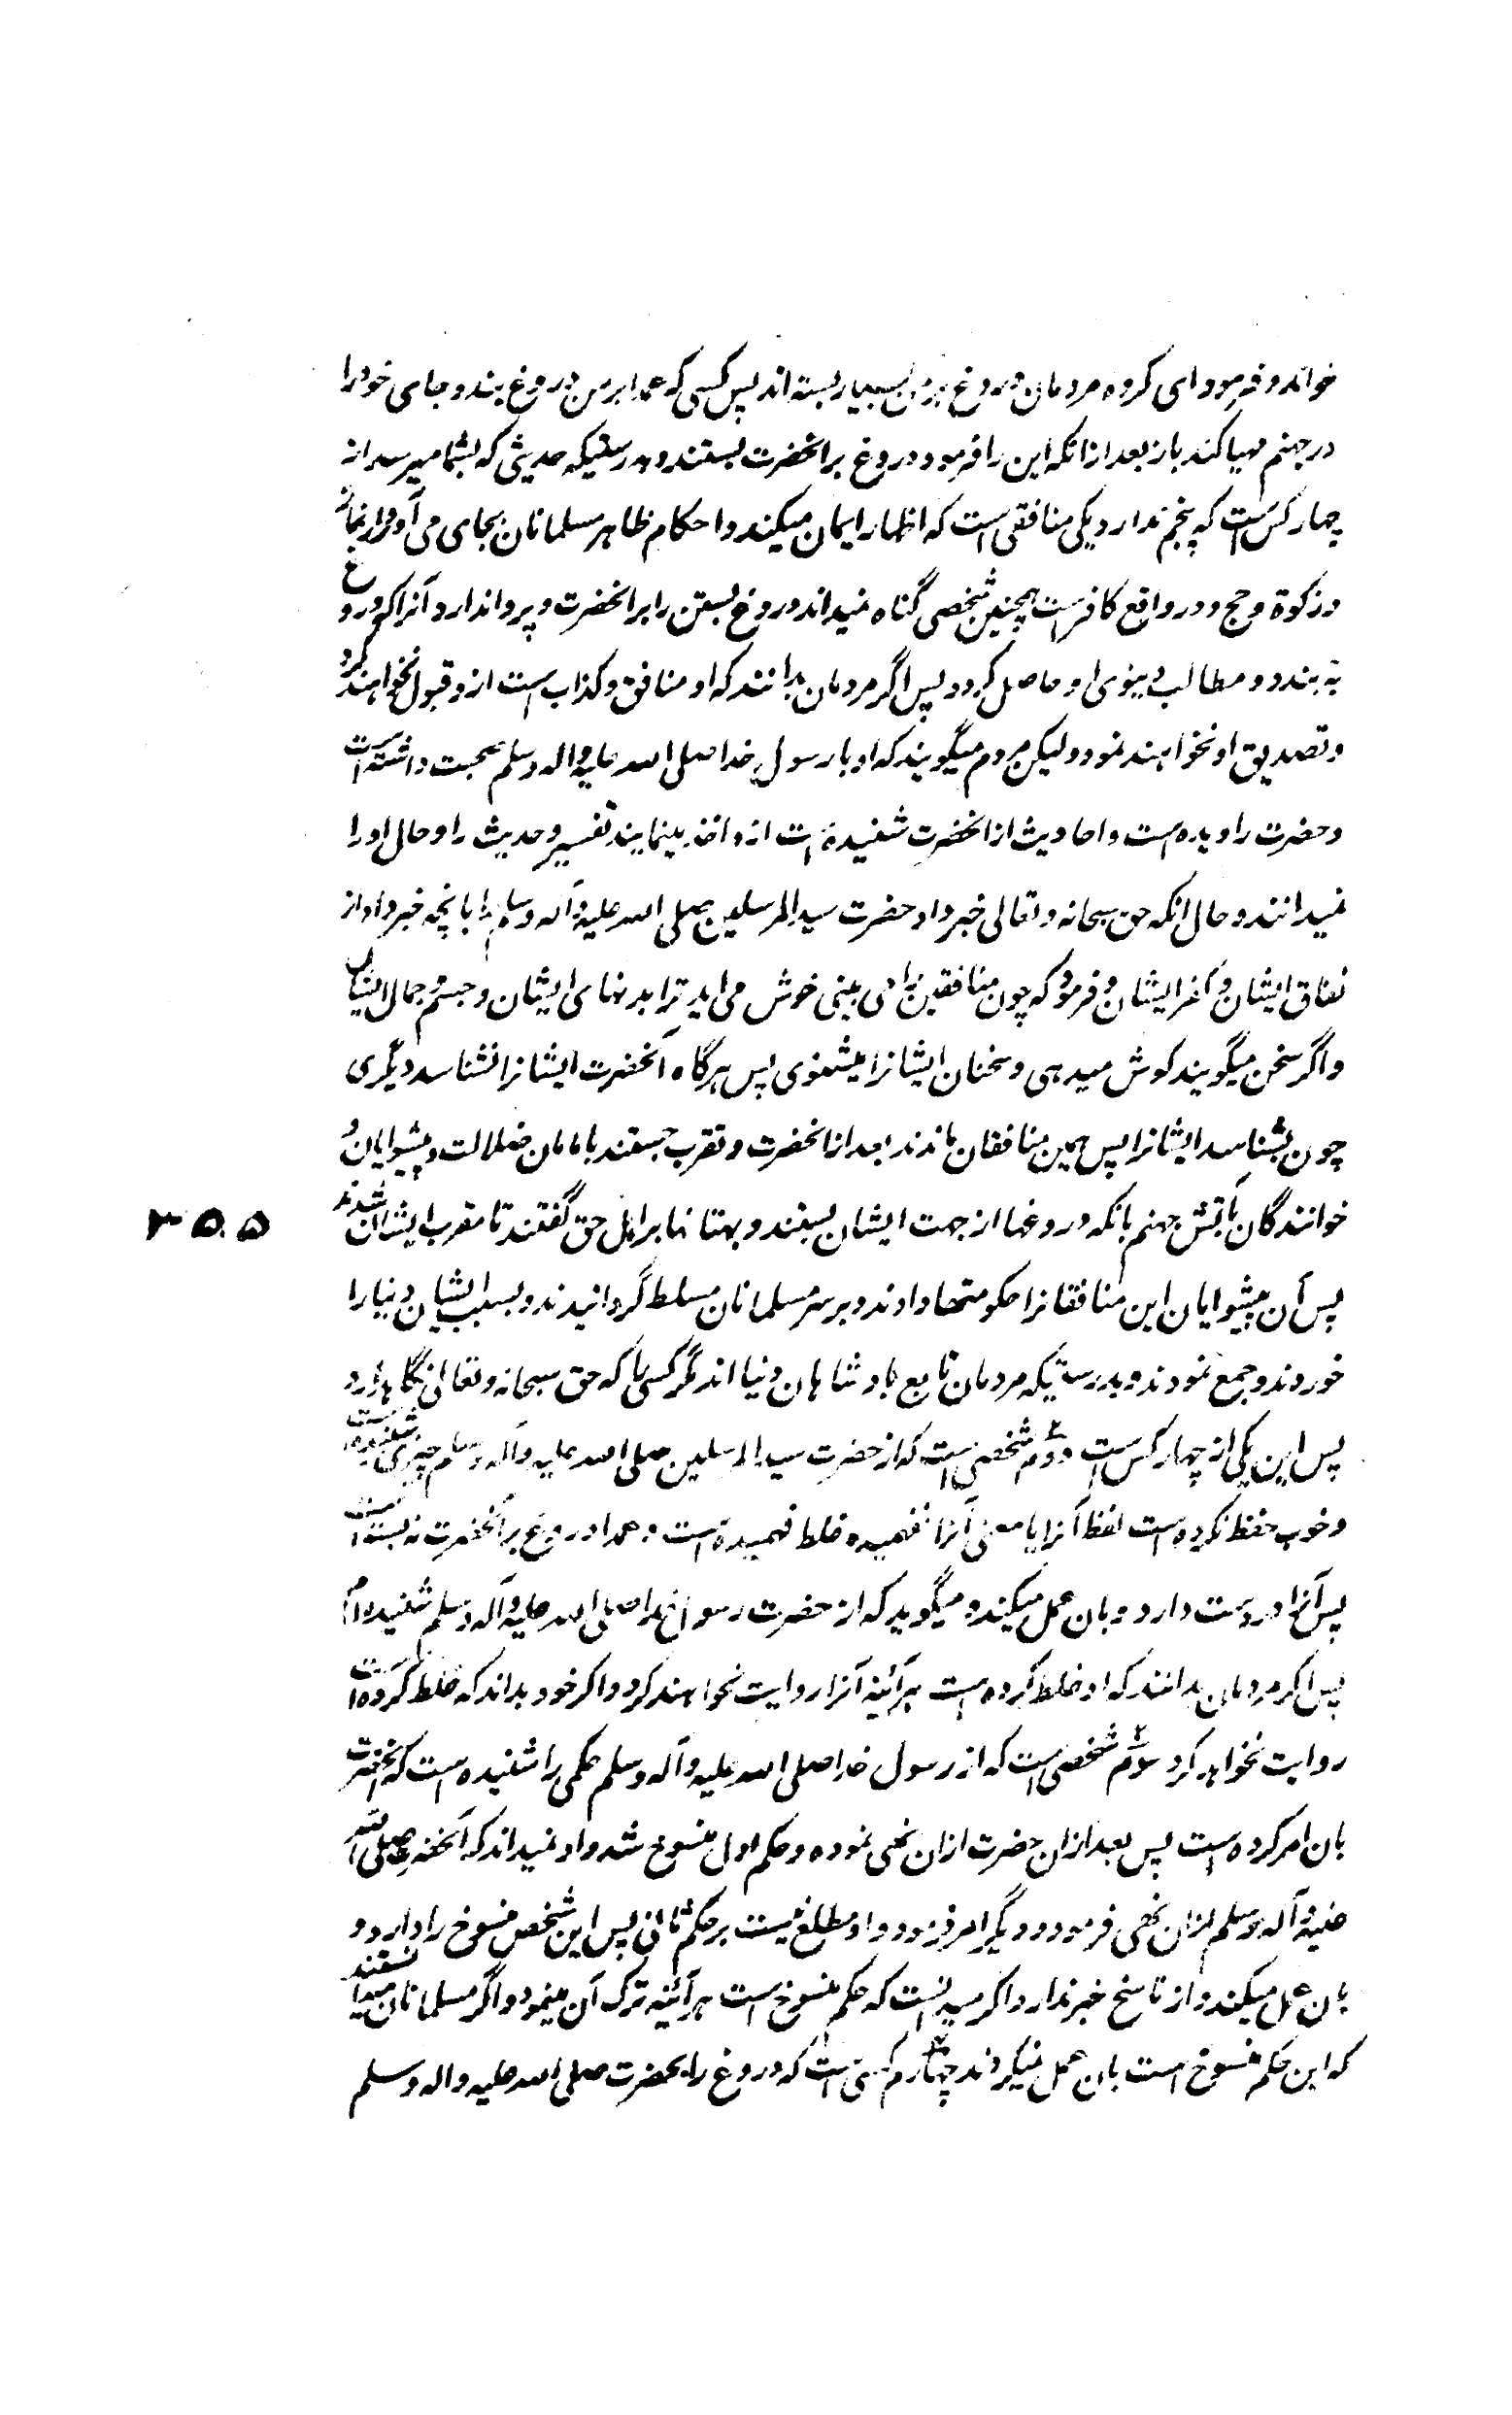 خواند و فرمود ای گروه مردمان دروغ بر من بسیار بسته اند پس کسی که عمدا بر من دروغ بندد جای خود را
در جهنم مهیا کند باز بعد ازانکه این را فرمود دروغ برانحضرت بستند و بدرستیکه حدیثی که بشما میرسد از
چهار کس است که پنجم ندارد یکی منافقی است که اظهار ایمان میکند و احکام ظاهر مسلمانان بجای می آورد از نماز
و زکوة و حج و در واقع کافر است همچنین شخصی گناه نمیداند دروغ بستن را برانحضرت و پروا ندارد آنرا که دروغ
به بندد و مطالب دنیوی او حاصل گردد پس اگر مردمان بدانند که او منافق و کذاب است ازو قبول نخواهند کرد
و تصدیق او نخواهند نمود و لیکن مردم میگویند که او با رسول خدا صلی الله علیه واله وسلم صحبت داشته است
و حضرت را دیده است و احادیث ازانحضرت شنیده است ازو اخذ مینمایند تفسیر و حدیث را و حال او را
نمیدانند و حال انکه حق سبحانه و تعالی خبر داد حضرت سید المرسلین صلی الله علیه وآله وسلم را بانچه خبر داد از
نفاق ایشان و کفر ایشان و فرمود که چون منافقین را می بینی خوش می اید ترا بدنهای ایشان و جسم و جمال ایشان
و اگر سخن میگویند گوش میدهی و سخنان ایشانرا میشنوی پس هرگاه آنحضرت ایشانرا نشناسد دیگری
چون بشناسد ایشانرا پس همین منافقان ماندند بعد ازانحضرت و تقرب جستند بامامان ضلالت و پیشوایان و
خوانندگان بآتش جهنم بانکه دروغها از جهت ایشان بستند و بهتانها بر اهل حق گفتند تا مقرب ایشان شدند
۳۵۵
پس آن پیشوایان این منافقانرا حکومتها دادند و بر سر مسلمانان مسلط گردانیدند و بسبب ایشان دنیا را
خوردند و جمع نمودند و بدرستیکه مردمان تابع بادشاهان دنیا اند مگر کسی را که حق سبحانه و تعالی نگاه دارد
پس این یکی از چهار کس است دوّم شخصی است که از حضرت سید المرسلین صلی الله علیه وآله وسلم چیزی شنیده است
و خوب حفظ نکرده است لفظ آنرا یا معنی آنرا نفهمیده غلط فهمیده است و عمدا دروغ برآنحضرت نه بسته است
پس آنرا در دست دارد و بان عمل میکند و میگوید که از حضرت رسول خدا صلی الله علیه وآله وسلم شنیده ام
پس اگر مردمان بدانند که او غلط کرده است هرآئینه آنرا روایت نخواهند کرد و اگر خود بداند که غلط کرده است
روایت نخواهد کرد سوّم شخصی است که از رسول خدا صلی الله علیه وآله وسلم حکمی را شنیده است که آنحضرت
بان امر کرده است پس بعد ازان حضرت ازان نهی نموده و حکم اول منسوخ شد و او نمیداند که آنحضرت صلی الله
علیه وآله وسلم ازان نهی فرمود و دیگر امر فرمود و او مطلع نیست بر حکم ثانی پس این شخص منسوخ را دارد و
بان عمل میکند و از ناسخ خبر ندارد و اگر میدانست که حکم منسوخ است هرآئینه ترک آن مینمود و اگر مسلمانان میدانستند
که این حکم منسوخ است بان عمل نمیکردند چهارم کسی است که دروغ را بحضرت صلی الله علیه واله وسلم